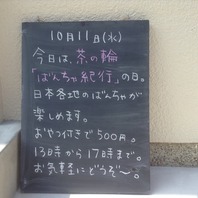 10月11日(水)
今日は、茶の輪
「ばんちゃ紀行」の日。
日本各地のばんちゃが
楽しめます。
おやつ付きで500円。
13時から17時まで。
お気軽にどうぞ〜。